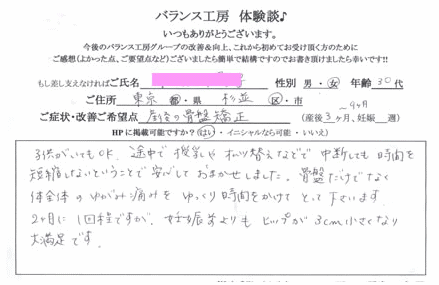 バランス工房 体験談♪
いつもありがとうございます。
今後のバランス工房グループの改善&向上、これから初めてお受け頂く方のために
ご感想(よかった点、ご要望点など)ございましたら簡単で結構ですのでお書き頂けましたら幸いです!!
もし差し支えなければご氏名 性別 男・女 年齢 30代
ご住所 東京 都・県 杉並 区・市
ご症状・改善ご希望点 産後の骨盤矯正 (産後3ヶ月〜9ヶ月、妊娠 週)
HPに掲載可能ですか?(はい・イニシャルなら可能・いいえ)
子供がいてもOK、途中で授乳やオムツ替えなどで中断しても時間を
短縮しないということで安心しておまかせしました。骨盤だけでなく
体全体のゆがみ痛みをゆっくり時間をかけてとって下さいます。
2ヶ月に1回程ですが、妊娠前よりもヒップが3cm小さくなり
大満足です。